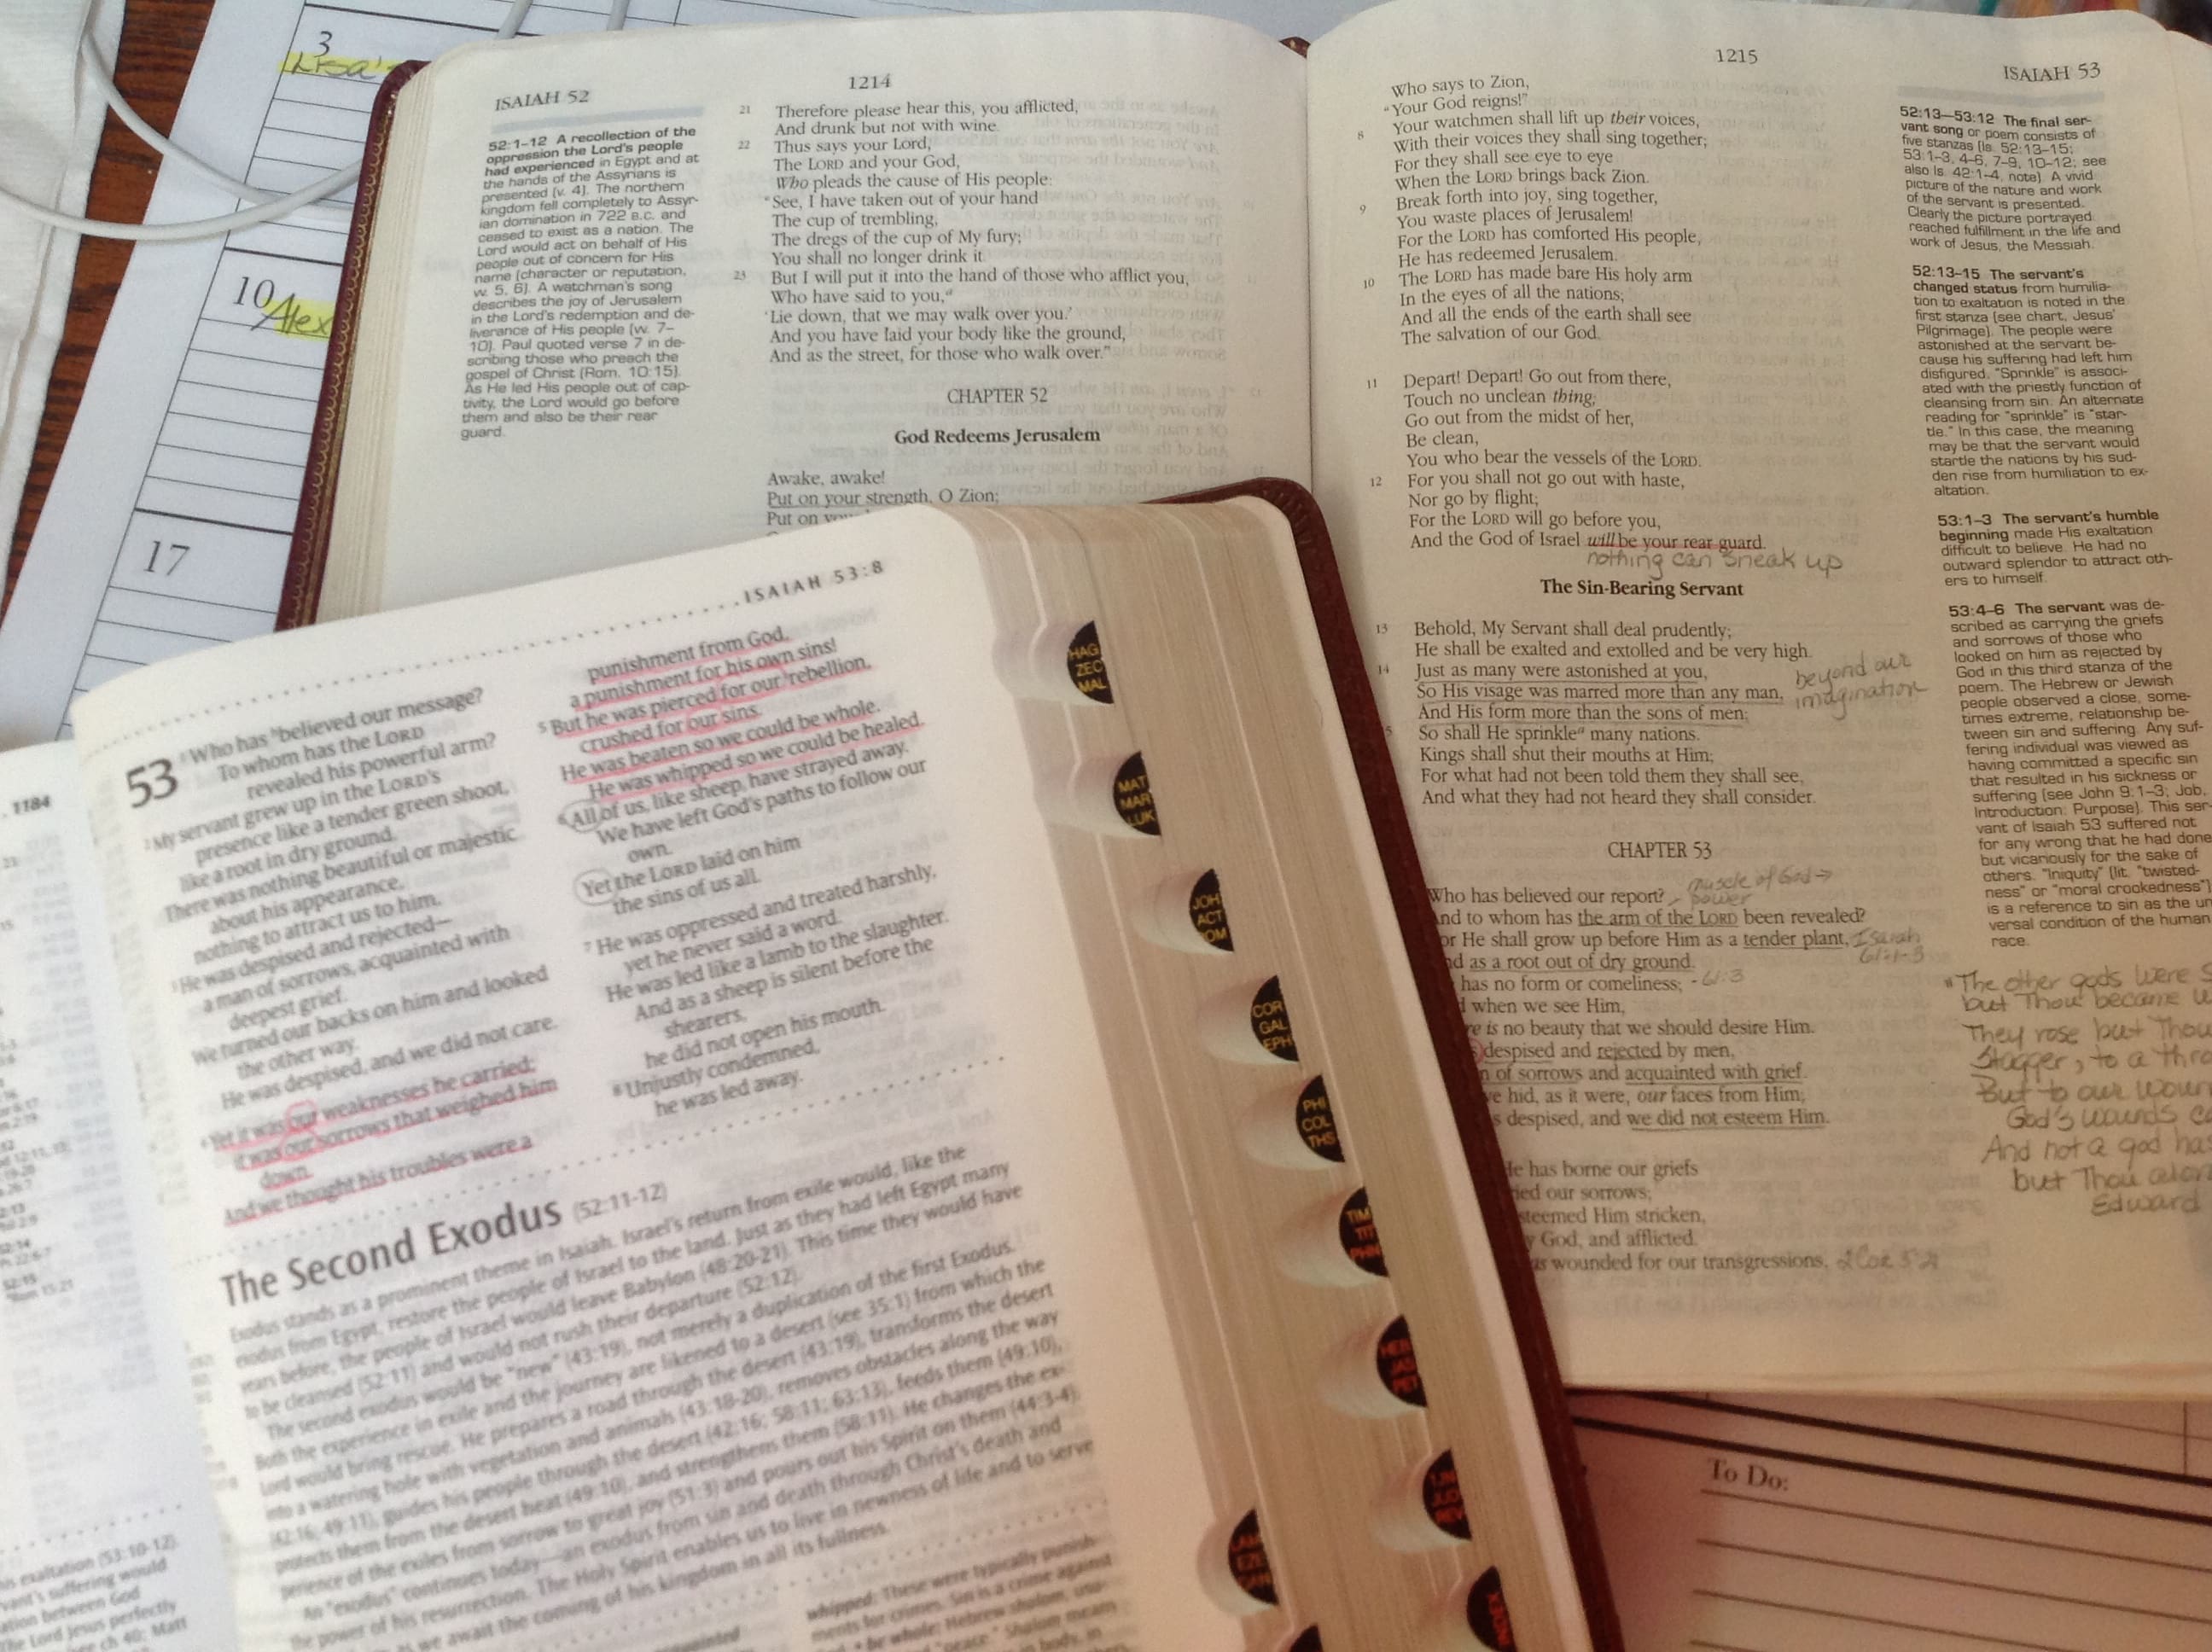 3
Lisa's
10
Alex
17
ISAIAH 52
1214
52:1–12 A recollection of the
oppression the Lord's people
had experienced in Egypt and at
the hands of the Assyrians is
presented (v. 4). The northern
kingdom fell completely to Assyr-
ian domination in 722 B.C. and
ceased to exist as a nation. The
Lord would act on behalf of His
people out of concern for His
name (character or reputation,
vv. 5, 6). A watchman's song
describes the joy of Jerusalem
in the Lord's redemption and de-
liverance of His people (vv. 7–
10). Paul quoted verse 7 in de-
scribing those who preach the
gospel of Christ (Rom. 10:15).
As He led His people out of cap-
tivity, the Lord would go before
them and also be their rear
guard.
21 Therefore please hear this, you afflicted,
And drunk but not with wine.
22 Thus says your Lord,
The LORD and your God,
Who pleads the cause of His people:
"See, I have taken out of your hand
The cup of trembling,
The dregs of the cup of My fury;
You shall no longer drink it.
23 But I will put it into the hand of those who afflict you,
Who have said to you,
'Lie down, that we may walk over you.'
And you have laid your body like the ground,
And as the street, for those who walk over."
CHAPTER 52
God Redeems Jerusalem
Awake, awake!
Put on your strength, O Zion;
Put on
1215
ISAIAH 53
Who says to Zion,
"Your God reigns!"
8 Your watchmen shall lift up their voices,
With their voices they shall sing together;
For they shall see eye to eye
When the LORD brings back Zion.
9 Break forth into joy, sing together,
You waste places of Jerusalem!
For the LORD has comforted His people,
He has redeemed Jerusalem.
10 The LORD has made bare His holy arm
In the eyes of all the nations;
And all the ends of the earth shall see
The salvation of our God.
11 Depart! Depart! Go out from there,
Touch no unclean thing;
Go out from the midst of her,
Be clean,
You who bear the vessels of the LORD.
12 For you shall not go out with haste,
Nor go by flight;
For the LORD will go before you,
And the God of Israel will be your rear guard.
nothing can sneak up
The Sin-Bearing Servant
13 Behold, My Servant shall deal prudently;
He shall be exalted and extolled and be very high.
14 Just as many were astonished at you,
So His visage was marred more than any man,
And His form more than the sons of men;
beyond our
imagination
5 So shall He sprinkle many nations.
Kings shall shut their mouths at Him;
For what had not been told them they shall see,
And what they had not heard they shall consider.
CHAPTER 53
muscle of God →
power
Who has believed our report?
And to whom has the arm of the LORD been revealed?
or He shall grow up before Him as a tender plant,
Isaiah
61:1-3
as a root out of dry ground.
has no form or comeliness; - 61:3
when we see Him,
is no beauty that we should desire Him.
despised and rejected by men,
of sorrows and acquainted with grief.
hid, as it were, our faces from Him;
despised, and we did not esteem Him.
He has borne our griefs
our sorrows;
esteemed Him stricken,
God, and afflicted.
wounded for our transgressions, 2 Cor 5:21
52:13—53:12 The final ser-
vant song or poem consists of
five stanzas (Is. 52:13–15;
53:1–3, 4–6, 7–9, 10–12; see
also Is. 42:1–4, note). A vivid
picture of the nature and work
of the servant is presented.
Clearly the picture portrayed
reached fulfillment in the life and
work of Jesus, the Messiah.
52:13–15 The servant's
changed status from humilia-
tion to exaltation is noted in the
first stanza (see chart, Jesus'
Pilgrimage). The people were
astonished at the servant be-
cause his suffering had left him
disfigured. "Sprinkle" is associ-
ated with the priestly function of
cleansing from sin. An alternate
reading for "sprinkle" is "star-
tle." In this case, the meaning
may be that the servant would
startle the nations by his sud-
den rise from humiliation to ex-
altation.
53:1–3 The servant's humble
beginning made His exaltation
difficult to believe. He had no
outward splendor to attract oth-
ers to himself.
53:4–6 The servant was de-
scribed as carrying the griefs
and sorrows of those who
looked on him as rejected by
God in this third stanza of the
poem. The Hebrew or Jewish
people observed a close, some-
times extreme, relationship be-
tween sin and suffering. Any suf-
fering individual was viewed as
having committed a specific sin
that resulted in his sickness or
suffering (see John 9:1–3; Job,
Introduction: Purpose). This ser-
vant of Isaiah 53 suffered not
for any wrong that he had done
but vicariously for the sake of
others. "Iniquity" (lit. "twisted-
ness" or "moral crookedness")
is a reference to sin as the un
versal condition of the human
race.
"The other gods were
but Thou became
They rose but Thou
Stagger, to a
But to our
God's wounds
And not a god
but Thou
Edward
To Do:
1184
ISAIAH 53:8
53 Who has believed our message?
To whom has the LORD
revealed his powerful arm?
2 My servant grew up in the LORD's
presence like a tender green shoot,
like a root in dry ground.
There was nothing beautiful or majestic
about his appearance,
nothing to attract us to him.
3 He was despised and rejected—
a man of sorrows, acquainted with
deepest grief.
We turned our backs on him and looked
the other way.
He was despised, and we did not care.
4 Yet it was our weaknesses he carried;
it was our sorrows that weighed him
down.
And we thought his troubles were a
punishment from God,
a punishment for his own sins!
5 But he was pierced for our rebellion,
crushed for our sins.
He was beaten so we could be whole.
He was whipped so we could be healed.
6 All of us, like sheep, have strayed away.
We have left God's paths to follow our
own.
Yet the LORD laid on him
the sins of us all.
7 He was oppressed and treated harshly,
yet he never said a word.
He was led like a lamb to the slaughter.
And as a sheep is silent before the
shearers,
he did not open his mouth.
8 Unjustly condemned,
he was led away.
The Second Exodus (52:11-12)
Exodus stands as a prominent theme in Isaiah. Israel's return from exile would, like the
exodus from Egypt, restore the people of Israel to the land. Just as they had left Egypt many
years before, the people of Israel would leave Babylon (48:20-21). This time they would have
to be cleansed (52:11) and would not rush their departure (52:12).
The second exodus would be "new" (43:19), not merely a duplication of the first Exodus.
Both the experience in exile and the journey are likened to a desert (see 35:1) from which the
Lord would bring rescue. He prepares a road through the desert (43:19), transforms the desert
into a watering hole with vegetation and animals (43:18-20), removes obstacles along the way
(42:16; 49:11), guides his people through the desert (42:16; 58:11; 63:13), feeds them (49:10),
protects them from the desert heat (49:10), and strengthens them (58:11). He changes the ex-
perience of the exiles from sorrow to great joy (51:3) and pours out his Spirit on them (44:3-4).
An "exodus" continues today—an exodus from sin and death through Christ's death and
the power of his resurrection. The Holy Spirit enables us to live in newness of life and to serve
as we await the coming of his kingdom in all its fullness.
exaltation (53:10-12).
servant's suffering would
between God
the Lord Jesus perfectly
ch 40; Matt
whipped: These were typically punish-
ments for crimes. Sin is a crime against
be whole: Hebrew shalom,
"peace." Shalom means
HAG
ZEC
MAL
MAT
MAR
LUK
JOH
ACT
ROM
COR
GAL
EPH
PHI
COL
THS
TIM
TIT
PHN
HEB
JAS
PET
JUD
REV
LAM
EZE
INDEX